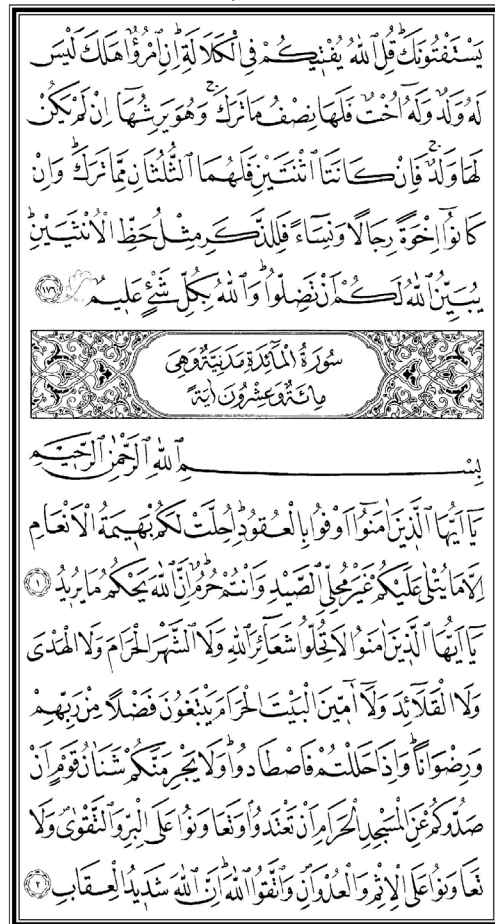 يَسْتَفْتُونَكَۜ قُلِ اللّٰهُ يُفْتٖيكُمْ فِي الْكَلَالَةِۜ اِنِ امْرُؤٌا هَلَكَ لَيْسَ
لَهُ وَلَدٌ وَلَهُٓ اُخْتٌ فَلَهَا نِصْفُ مَا تَرَكَۚ وَهُوَ يَرِثُهَٓا اِنْ لَمْ يَكُنْ
لَهَا وَلَدٌۚ فَاِنْ كَانَتَا اثْنَتَيْنِ فَلَهُمَا الثُّلُثَانِ مِمَّا تَرَكَۜ وَاِنْ
كَانُٓوا اِخْوَةً رِجَالًا وَنِسَٓاءً فَلِلذَّكَرِ مِثْلُ حَظِّ الْاُنْثَيَيْنِۜ
يُبَيِّنُ اللّٰهُ لَكُمْ اَنْ تَضِلُّواۜ وَاللّٰهُ بِكُلِّ شَيْءٍ عَلٖيمٌ ﴿١٧٦﴾
سُورَةُ الْمَٓائِدَةِ مَدَنِيَّةٌ وَهِيَ
مِائَةٌ وَعِشْرُونَ اٰيَةً
بِسْمِ اللّٰهِ الرَّحْمٰنِ الرَّحٖيمِ
يَٓا اَيُّهَا الَّذٖينَ اٰمَنُٓوا اَوْفُوا بِالْعُقُودِۜ اُحِلَّتْ لَكُمْ بَهٖيمَةُ الْاَنْعَامِ
اِلَّا مَا يُتْلٰى عَلَيْكُمْ غَيْرَ مُحِلِّي الصَّيْدِ وَاَنْتُمْ حُرُمٌۜ اِنَّ اللّٰهَ يَحْكُمُ مَا يُرٖيدُ ﴿١﴾
يَٓا اَيُّهَا الَّذٖينَ اٰمَنُوا لَا تُحِلُّوا شَعَٓائِرَ اللّٰهِ وَلَا الشَّهْرَ الْحَرَامَ وَلَا الْهَدْيَ
وَلَا الْقَلَٓائِدَ وَلَٓا اٰمّٖينَ الْبَيْتَ الْحَرَامَ يَبْتَغُونَ فَضْلًا مِنْ رَبِّهِمْ
وَرِضْوَانًاۜ وَاِذَا حَلَلْتُمْ فَاصْطَادُواۜ وَلَا يَجْرِمَنَّكُمْ شَنَاٰنُ قَوْمٍ اَنْ
صَدُّوكُمْ عَنِ الْمَسْجِدِ الْحَرَامِ اَنْ تَعْتَدُواۢ وَتَعَاوَنُوا عَلَى الْبِرِّ وَالتَّقْوٰىۖ وَلَا
تَعَاوَنُوا عَلَى الْاِثْمِ وَالْعُدْوَانِۖ وَاتَّقُوا اللّٰهَۜ اِنَّ اللّٰهَ شَدٖيدُ الْعِقَابِ ﴿٢﴾